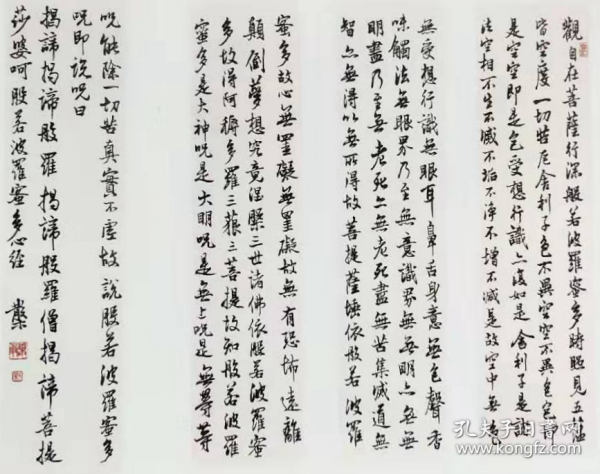 觀自在菩薩行深般若波羅蜜多時照見五蘊
皆空度一切苦厄舍利子色不異空空不異色色即
是空空即是色受想行識亦復如是舍利子是諸
法空相不生不滅不垢不淨不增不減是故空中無色
無受想行識無眼耳鼻舌身意無色聲香
味觸法無眼界乃至無意識界無無明亦無無
明盡乃至無老死亦無老死盡無苦集滅道無
智亦無得以無所得故菩提薩埵依般若波羅
蜜多故心無罣礙無罣礙故無有恐怖遠離
顛倒夢想究竟涅槃三世諸佛依般若波羅蜜
多故得阿耨多羅三藐三菩提故知般若波羅
蜜多是大神呪是大明呪是無上呪是無等等
呪能除一切苦真實不虛故說般若波羅蜜多
呪即說呪曰
揭諦揭諦般羅揭諦般羅僧揭諦菩提
莎婆呵般若波羅蜜多心經